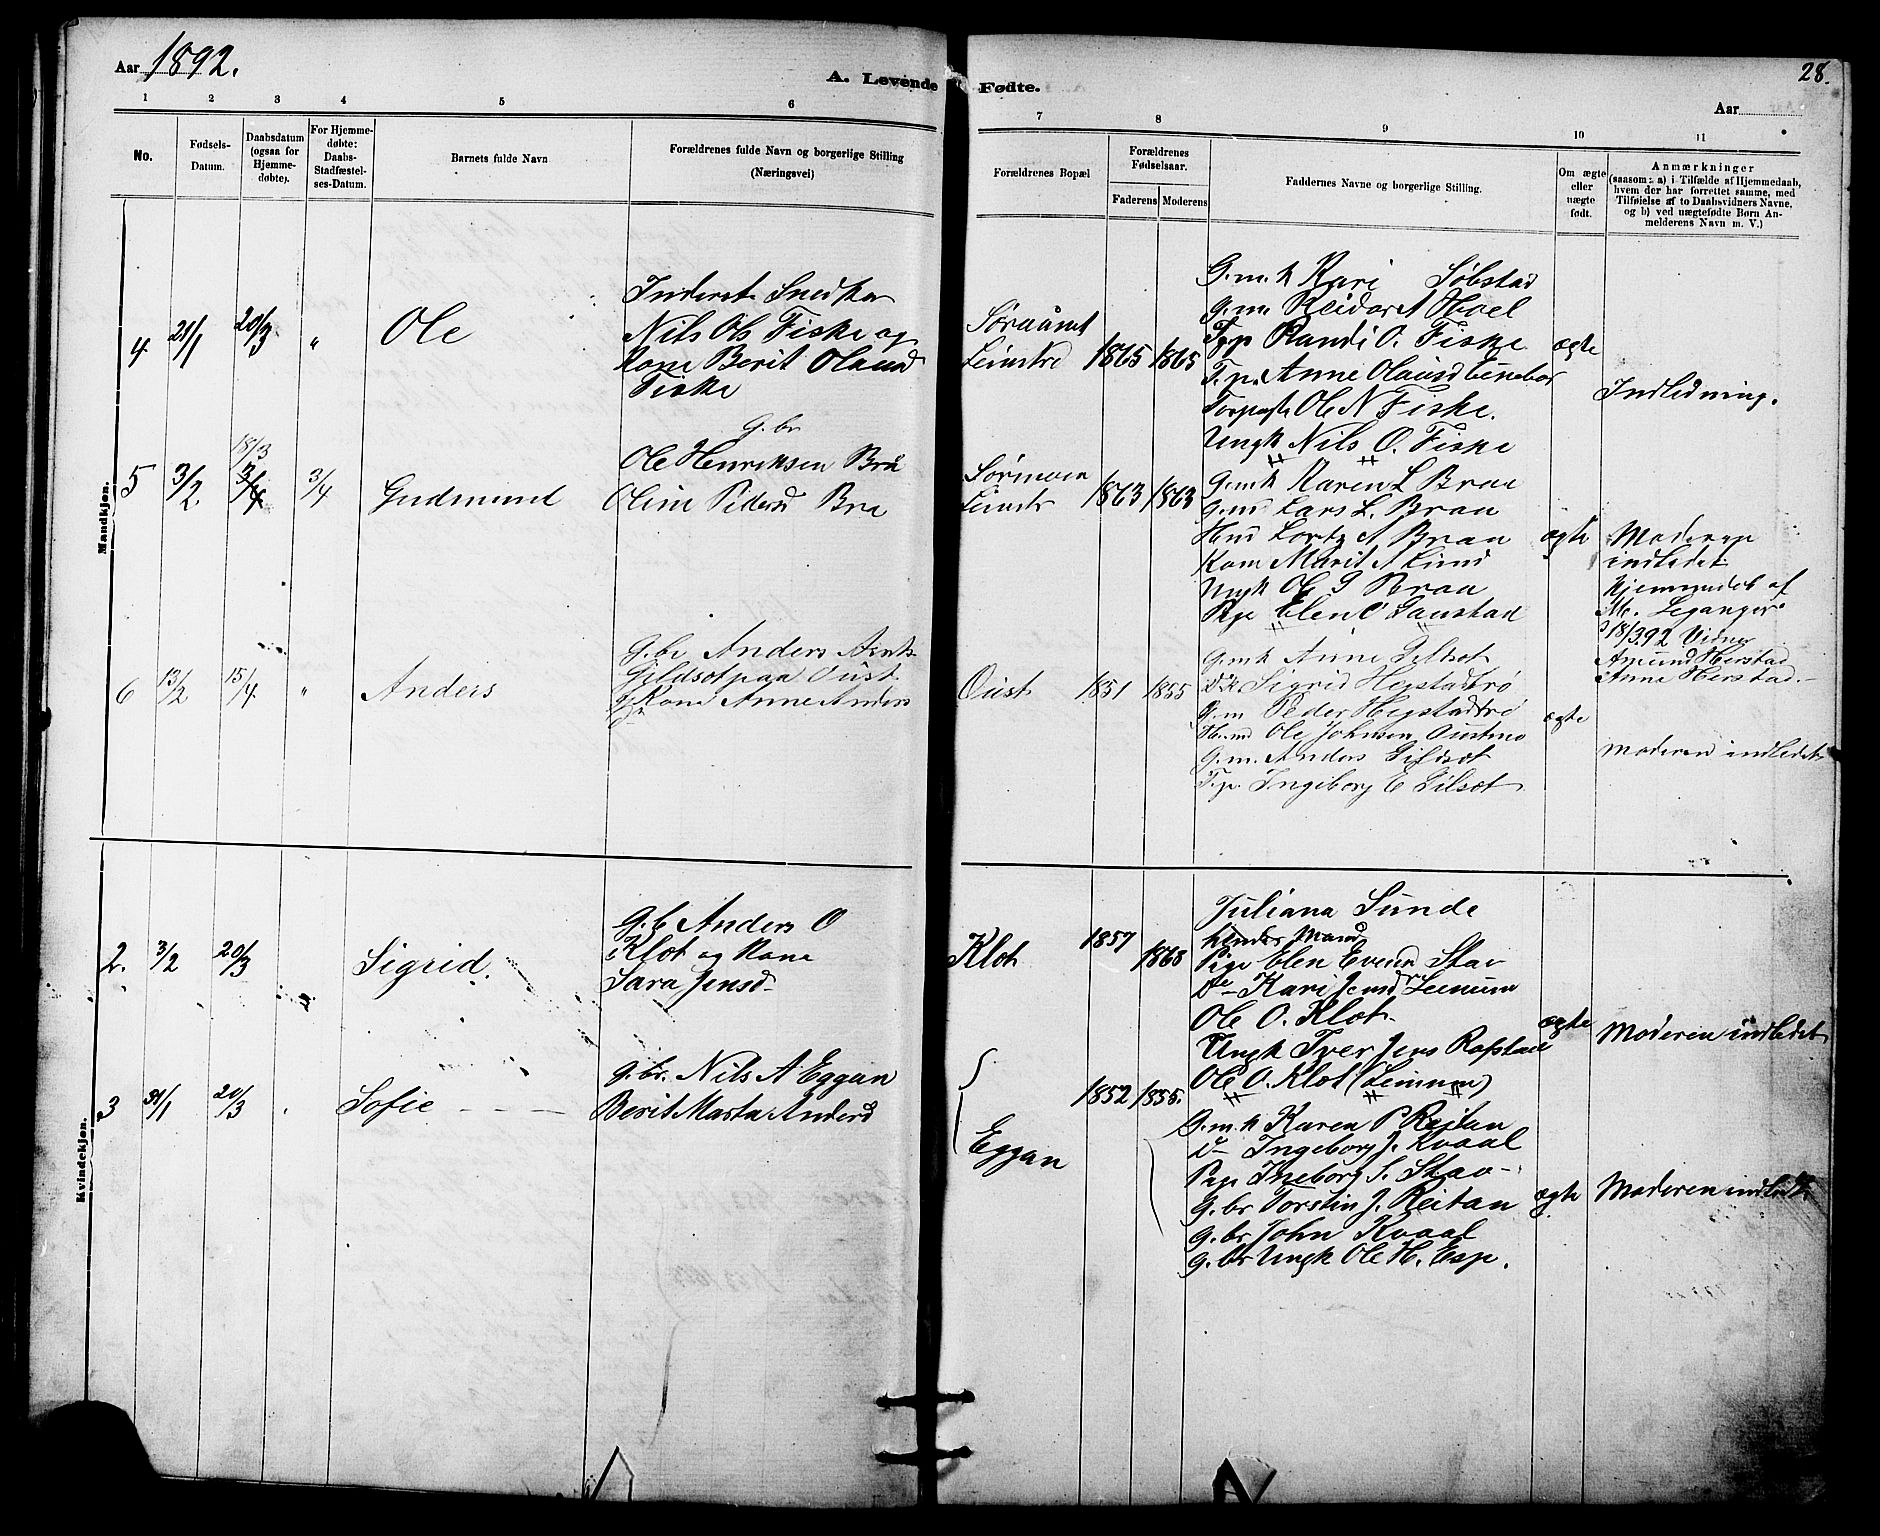 Aar 1892.
A. Levende
Fødte.
28.
Aar
1 2 3 4 5 6
7 8 9 10 11
No.
Fødsels-
Datum.
Daabsdatum
(ogsaa for
Hjemme-
døbte).
For Hjemme-
døbte:
Daabs-
Stadfæstel-
ses-Datum.
Barnets fulde Navn
Forældrenes fulde Navn og borgerlige Stilling
(Næringsvei)
Forældrenes Bopæl
Forældrenes
Fødselsaar.
Faderens Moderens
Faddernes Navne og borgerlige Stilling.
Om ægte
eller
uægte
født.
Anmærkninger
(saasom: a) i Tilfælde af Hjemmedaab,
hvem der har forrettet samme, med
Tilføielse af to Daabsvidners Navne,
og b) ved uægtefødte Børn An-
melderens Navn m. V.)
Mandkjøn.
4. 21/1 20/3 " Ole
Inderst Snedker
Nils Ols Fiske og
Kone Berit Olausd
Fiske
Leinstre 1865 1865
G.m.k Kari Søbstad
G.m. Reidar A Hoel
Randi O. Fiske
T.p. Anne Olausd
Ole N Fiske.
Ungk Nils O. Fiske
ægte
Indledning.
5 3/2 18/3 3/4 3/4 Gudmund
G.br
Ole Henriksen Bra
Oline Pedersd Bra
Sørmoen
Leinstr 1863 1863
G.mk Karen L Braa
G.md Lars L. Braa
Hmd A Braa
Kone Marit A Lund
Ungk Ole G Braa
Pige Elen O
ægte
Moderen
indledet
Hjemmedøbt af
Mr. Leganger
18/3 92 Vidner
Amund Herstad
Anne Herstad.
6 13/2 15/4 " Anders
G.br Anders Arnts
Gildsot paa Øust
Kone Anne Anders
Øust 1851 1855
G.mk Anne Gildsot
D.k Sigrid Hegstadtrø
G.m Peder Hegstadtrø
Ole Johnsen Oustmo
G.m. Anders Gildsot
T.p. Ingeborg E Gilsot
ægte
Moderen indledet
Kvindekjøn.
2. 3/2 20/3 Sigrid.
G.b Anders O
Klot og Kone
Sara Jensd
Klot 1857 1868
Juliana Sunde
hendes Mand
Pige Elen
Do Kari Jensd
Ole O. Klot
Ungk Iver Jens
Ole O. Klot
ægte
Moderen indledet
3 31/1 20/3 Sofie
G.br. Nils A Eggan
Berit Marta Andersd
Eggan 1852 1855.
G.m.k Karen P Reitan
Do Ingeborg J. Kvaal
Pige Ingeborg S. Stav
G.br Torstin J. Reitan
G.br John Kvaal
G.br Ungk Ole H. Esp.
ægte
Moderen indledt